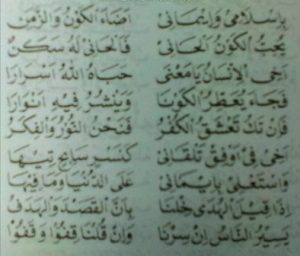 بإسلامي وإيماني أضاء الكون والزمن
يحب الكون ألحاني فألحاني له سكن
أخي الإنسان يا معنى حباه الله أسرارا
فجاء يعطر الكونا وينشر فيه أنوارا
فإن تك تعشق الكفر فنحن النور والفكر
أخي في أوفق تلقاني كنسر سابح تيها
وأستعلي بإيماني على الدنيا وما فيها
إذا قيل الهدى خلنا بأن القصد والهدف
يسير الناس إن سرنا وإن قلنا قفوا وقفوا